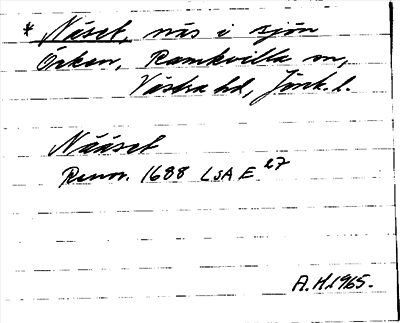 * Näset, näs i sjön
Örken, Ramkvilla sn,
Västra hd, Jönk. l.
Nääset
Renov. 1688 LSA E 27
A.H. 1965.